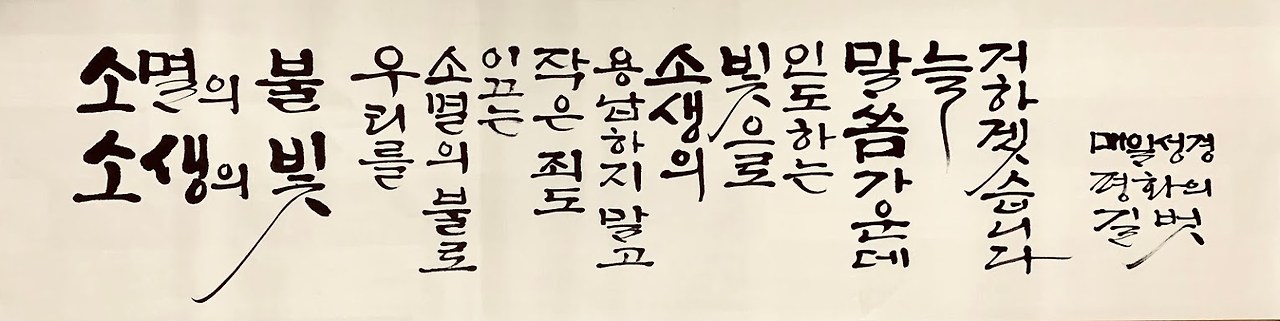 소멸의 불
소생의 빛
우리를
소멸의 불로
이끄는
작은 죄도
용납하지 말고
소생의
빛으로
인도하는
말씀 가운데
늘
거하겠습니다
매일성경
평화의
길벗